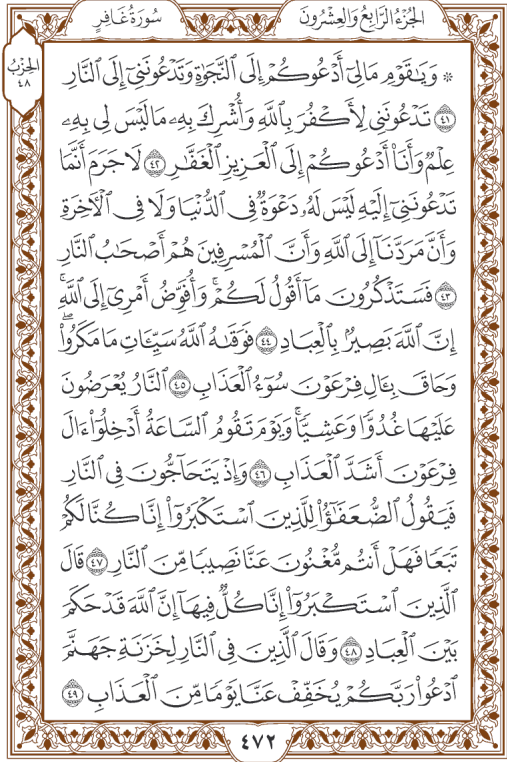 الجُزْءُ الرَّابِعُ وَالعِشْرُونَ
سُورَةُ غَافِرٍ
الحِزْبُ
٤٨
۞ وَيَٰقَوْمِ مَالِيٓ أَدْعُوكُمْ إِلَى ٱلنَّجَوٰةِ وَتَدْعُونَنِيٓ إِلَى ٱلنَّارِ
٤١ تَدْعُونَنِي لِأَكْفُرَ بِٱللَّهِ وَأُشْرِكَ بِهِۦ مَا لَيْسَ لِي بِهِۦ
عِلْمٌ وَأَنَا۠ أَدْعُوكُمْ إِلَى ٱلْعَزِيزِ ٱلْغَفَّٰرِ ٤٢ لَا جَرَمَ أَنَّمَا
تَدْعُونَنِيٓ إِلَيْهِ لَيْسَ لَهُۥ دَعْوَةٌ فِي ٱلدُّنْيَا وَلَا فِي ٱلْأٓخِرَةِ
وَأَنَّ مَرَدَّنَآ إِلَى ٱللَّهِ وَأَنَّ ٱلْمُسْرِفِينَ هُمْ أَصْحَٰبُ ٱلنَّارِ
٤٣ فَسَتَذْكُرُونَ مَآ أَقُولُ لَكُمْۚ وَأُفَوِّضُ أَمْرِيٓ إِلَى ٱللَّهِۚ
إِنَّ ٱللَّهَ بَصِيرٌۢ بِٱلْعِبَادِ ٤٤ فَوَقَىٰهُ ٱللَّهُ سَيِّـَٔاتِ مَا مَكَرُوا۟ۖ
وَحَاقَ بِـَٔالِ فِرْعَوْنَ سُوٓءُ ٱلْعَذَابِ ٤٥ ٱلنَّارُ يُعْرَضُونَ
عَلَيْهَا غُدُوًّا وَعَشِيًّاۚ وَيَوْمَ تَقُومُ ٱلسَّاعَةُ أَدْخِلُوٓا۟ ءَالَ
فِرْعَوْنَ أَشَدَّ ٱلْعَذَابِ ٤٦ وَإِذْ يَتَحَآجُّونَ فِي ٱلنَّارِ
فَيَقُولُ ٱلضُّعَفَٰٓؤُا۟ لِلَّذِينَ ٱسْتَكْبَرُوٓا۟ إِنَّا كُنَّا لَكُمْ
تَبَعًا فَهَلْ أَنتُم مُّغْنُونَ عَنَّا نَصِيبًا مِّنَ ٱلنَّارِ ٤٧ قَالَ
ٱلَّذِينَ ٱسْتَكْبَرُوٓا۟ إِنَّا كُلٌّ فِيهَآ إِنَّ ٱللَّهَ قَدْ حَكَمَ
بَيْنَ ٱلْعِبَادِ ٤٨ وَقَالَ ٱلَّذِينَ فِي ٱلنَّارِ لِخَزَنَةِ جَهَنَّمَ
ٱدْعُوا۟ رَبَّكُمْ يُخَفِّفْ عَنَّا يَوْمًا مِّنَ ٱلْعَذَابِ ٤٩
٤٧٢